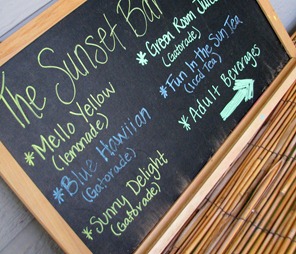 The Sunset Bar
*Mello Yellow
(lemonade)
*Blue Hawiian
(Gatorade)
*Sunny Delight
(Gatorade)
*Green Room Juice
(Gatorade)
*Fun In the Sun Tea
(Iced Tea)
*Adult Beverages